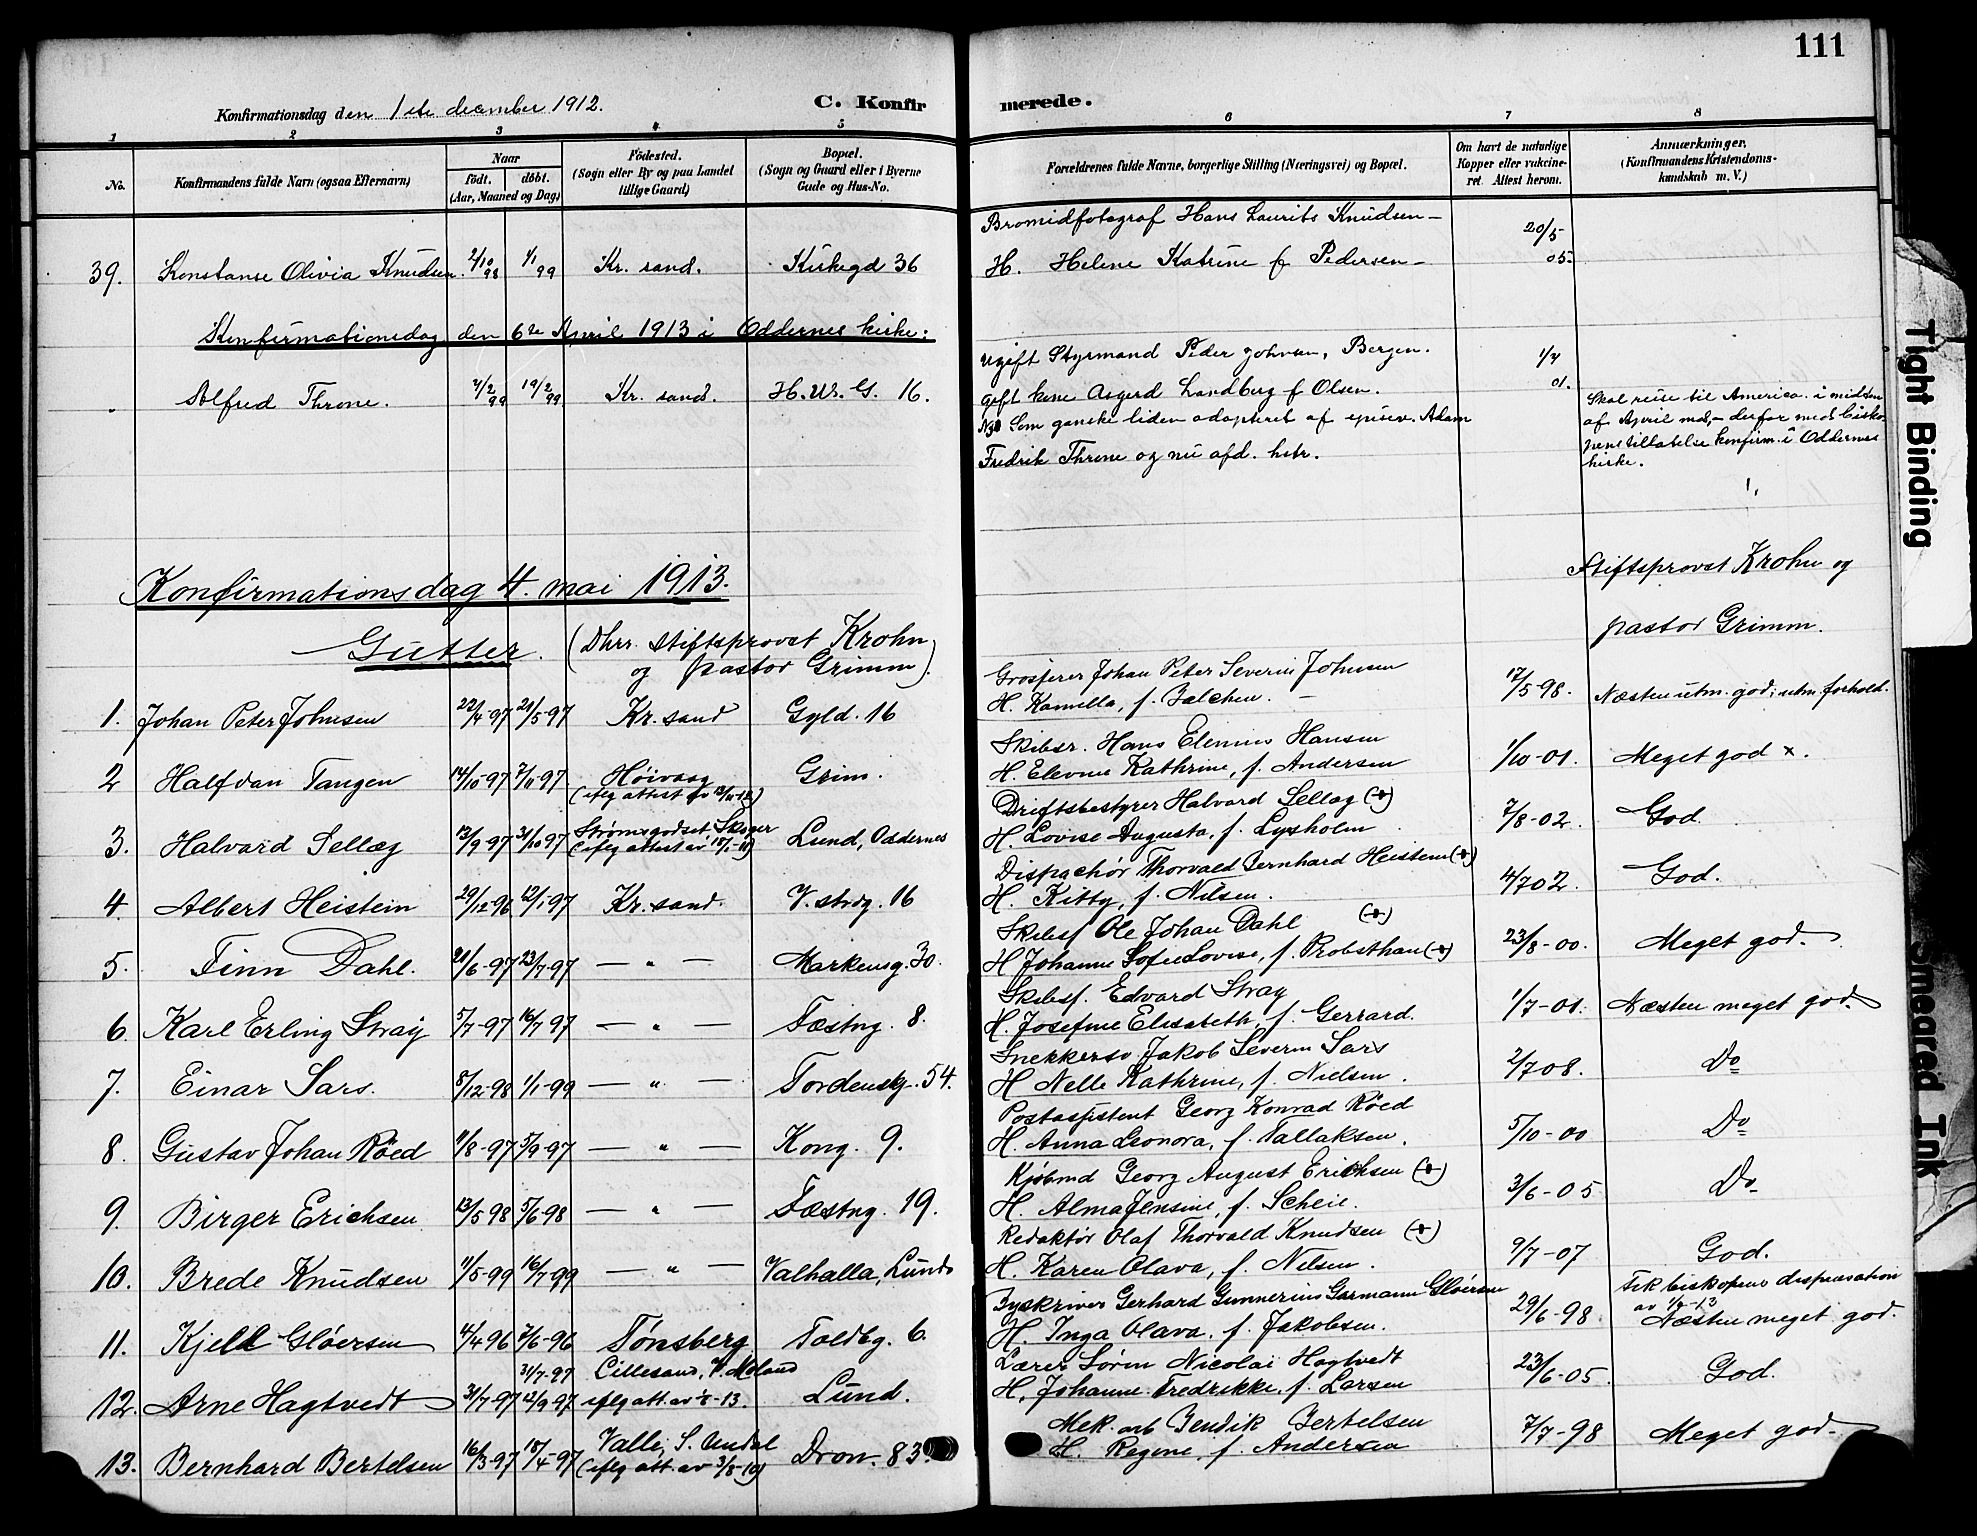 111
Konfirmationsdag den 1ste december 1912.
C. Konfirmerede.
1 2 3 4 5 6 7 8
No.
Konfirmandens fulde Navn (ogsaa Efternavn)
Naar
født. døbt.
(Aar, Maaned og Dag)
Fødested.
(Sogn eller By og paa Landet
tillige Gaard)
Bopæl.
(Sogn og Gaard eller i Byerne
Gade og Hus-No.
Forældrenes fulde Navne, borgerlige Stilling (Næringsvei) og Bopæl.
Om havt de naturlige
Kopper eller vakcine-
ret. Attest herom.
Anmærkninger,
(Konfirmandens Kristendoms-
kundskab m. V.)
Bromidfotograf Hans Laurits Knudsen - 20/5
39. Konstanse Olivia Knudsen 2/10 98 1/1 99 Kr. sand. Kirkegd 36 H. Helene Katrine f Pedersen - 05
Konfirmationsdag den 6te April 1913 i Oddernes kirke:
ugift Styrmand Peder Johnsen, Bergen. 1/7
Alfred Throne. 7/2 99 19/2 99 Kr. sand. H. Wr. G. 16. gift kone Asgerd Landberg f Olsen. 01.
Som ganske liden adopteret af Adam
Fredrik Throne og nu afd. hstr.
Skal reise til America i midten
af April md, - derfor med bisko-
pens tilladelse konfirm. i Oddernes
kirke.
Konfirmationsdag 4. mai 1913.
Stiftsprovst Krohn og
pastor Grimm.
Gutter. (Dhrr. stiftsprovst Krohn
og pastor Grimm).
Grosserer Johan Peter Severin Johnsen
1. Johan Peter Johnsen 22/4-97 21/5-97 Kr. sand Gyld. 16 H. Kamilla, f. Balchen. - 17/5-98. Næsten utm. god; utm. forhold.
Skibsr. Hans Elenius Hansen
2 Halfdan Tangen 14/10-97 7/11-97 Høivaag Grim. H. Elevine Kathrine, f. Andersen 1/10-01. Meget god x.
(iflg attest av 13/11-12)
Driftsbestyrer Halvard Sellæg (+)
3. Halvard Sellæg 13/9-97 31/10 97 Strømsgodset Skoger Lund, Oddernes H. Lovise Augusta, f. Lysholm 7/8-02. God.
(iflg attest av 18/1-11)
Dispachør Thorvald Bernhard Heistein (+)
4 Albert Heistein 29/12-96 12/1-97 Kr. sand. V. strdg. 16 H. Kitty, f. Nilsen. 4/7 02. God.
Skibsf Ole Johan Dahl (+)
5. Finn Dahl. 20/6-97 23/7-97 — „ — Markensg. 30. H Johanne Sofie Lovise, f. Probsthan (+) 23/8-00. Meget god.
Skibsf. Edvard Stray
6 Karl Erling Stray 5/7-97 16/7 97 — „ — Fæstng. 8. H. Josefine Elisabeth, f. Gerrard. 1/7-01. Næsten meget god.
Snekkersv. Jakob Severin Sars
7. Einar Sars. 8/12-98 1/1-99 — „ — Tordenskj. 54. H Nelle Kathrine, f. Nielsen. 2/7 08. Do
Postassistent Georg Konrad Røed
8. Gustav Johan Røed 11/8-97 5/9-97 — „ — Kong. 9. H. Anna Leonora, f. Tallaksen. 5/10-00 Do
Kjøbmd Georg August Erichsen (+)
9. Birger Erichsen 13/5 98 5/6-98 — „ — Fæstng. 19. H. Alma Jensine, f. Scheie. 3/6-05 Do
Redaktør Olaf Thorvald Knudsen (+)
10. Brede Knudsen 11/5-99 16/7-99 — „ — Valhalla, Lund H. Karen Olava, f. Nilsen. 9/7-07 God.
Byskriver Gerhard Gunnerius Garmann Gløersen
Fik biskopens dispensation
av 1/2-13
11. Kjell Gløersen 4/4 96 7/6-96 Tønsberg Toldbg. 6. H. Inga Olava. f. Jakobsen. 29/6-98. Næsten meget god.
31/7-97 Lillesand, V. Moland Lærer Søren Nicolai Hagtvedt
12. Arne Hagtvedt 31/7-97 12/9-97 iflg att. av -13. Lund. H. Johanne Fredrikke, f. Larsen 23/6-05. God.
Valle, S. Undal Mek. arb Bendik Bertelsen
13. Bernhard Bertelsen 16/3-97 18/4-97 (iflg att. av 3/8-10) Dron. 83. H. Regine, f. Andersen 7/7-98 Meget god.
Tight Binding
Smeared Ink